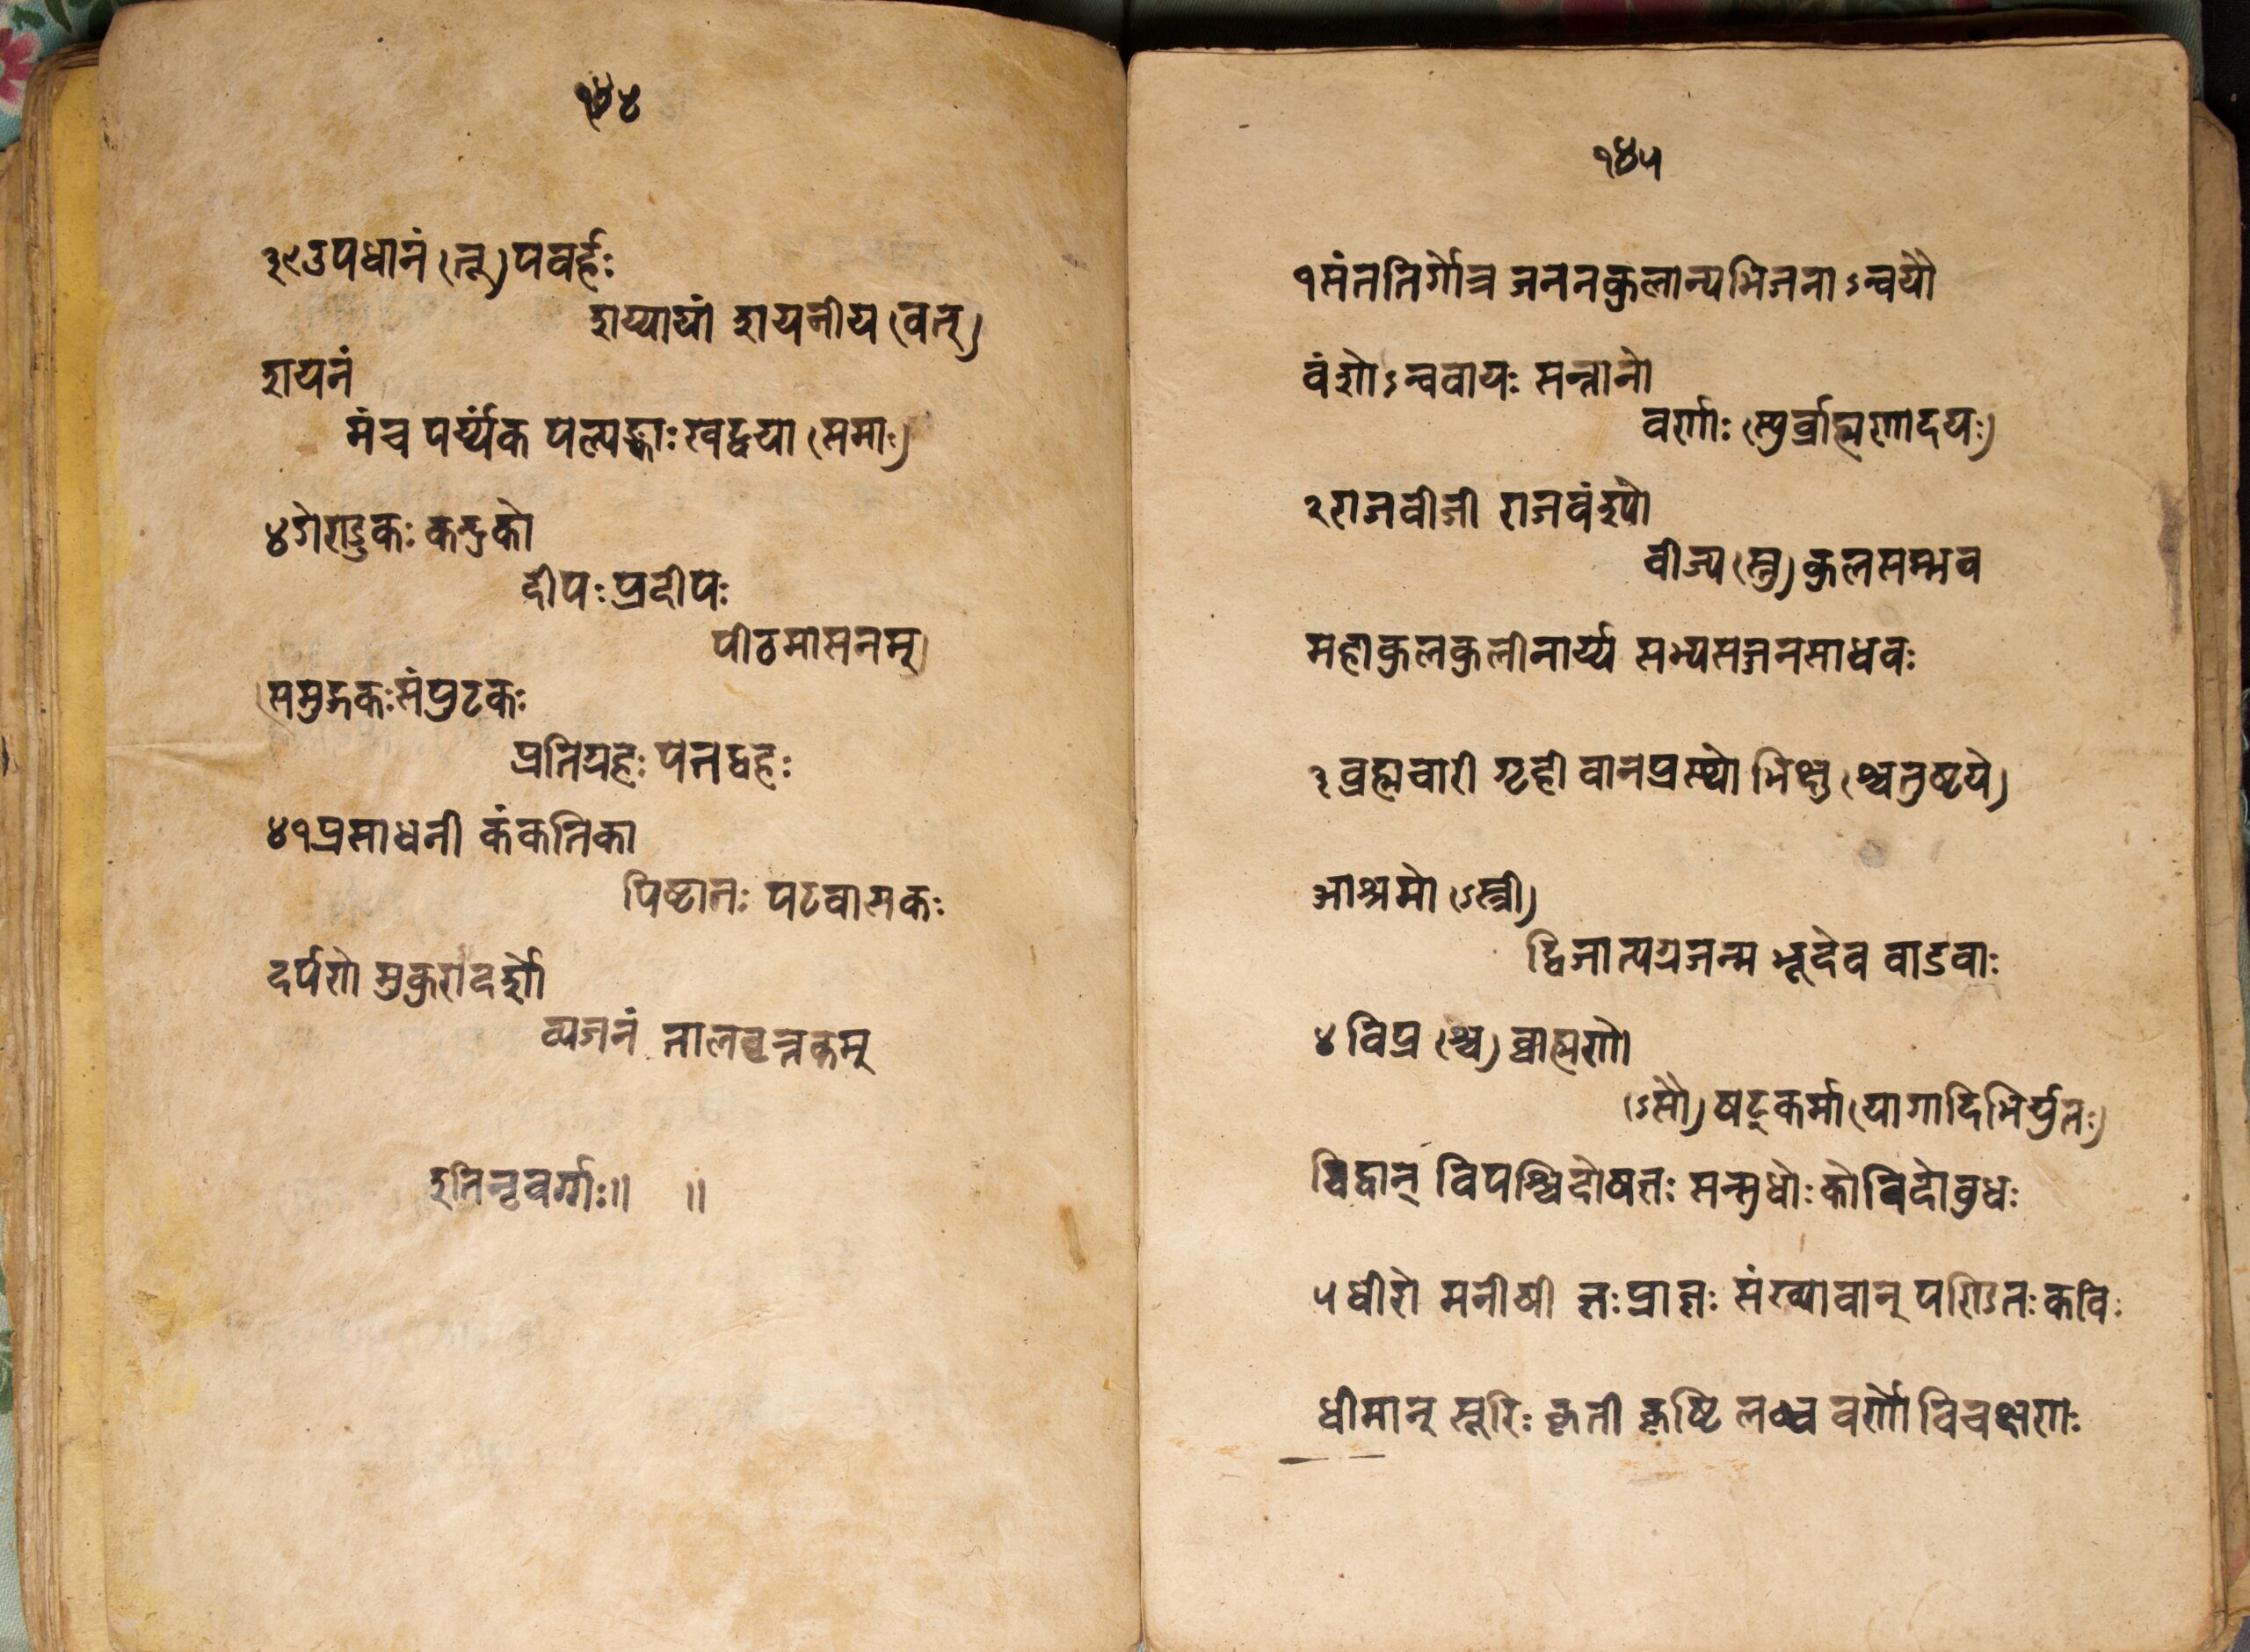 १४४
३९उपधानं (तू)पवर्हः
शय्यायां शयनीय (वत्)
शयनं
मंच पर्य्यंक पल्यङ्काः खट्वया (समाः)
४गेराडुकः कन्दुको
दीपः प्रदीपः
पीठमासनम्
(समुद्गकः संपुटकः
प्रतिग्रहः पतद्ग्रहः
४१प्रसाधनी कंकतिका
पिष्टातः पटवासकः
दर्पणो मुकुरादर्शौ
व्यजनं तालवृन्तकम्
इतिनृवर्गः॥ ॥
१४५
१संततिर्गोत्र जननकुलान्यभिजनाऽन्वयौ
वंशोऽन्ववायः सन्तानो
वर्णाः (स्युर्ब्राह्मणादयः)
२राजवीजी राजवंश्यो
वीज्य (स्तु)कुलसम्भव
महाकुलकुलीनार्य्य सभ्यसज्जनसाधवः
३ब्रह्मचारी गृही वानप्रस्थो भिक्षु (श्चतुष्टये)
आश्रमो (ऽस्त्री)
द्विजात्यग्रजन्म भूदेव वाडवाः
४विप्र (श्च)ब्राह्मणो
(ऽसौ)षट्कर्मा (यागादिभिर्युतः)
विद्वान् विपश्चिदोषज्ञः सन्सुधीः कोविदोवुधः
५धीरो मनीषी ज्ञः प्राज्ञः संख्यावान् पण्डितः कविः
धीमान् सूरिः कृती कृष्टि लब्ध वर्णो विचक्षणः